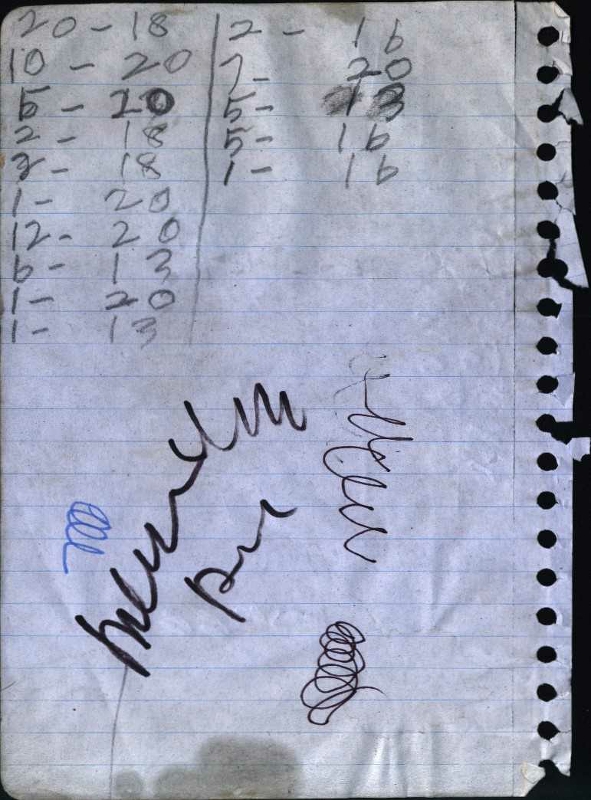 20 - 18
10 - 20
5 - 20
2 - 18
2 - 18
1 - 20
12 - 20
6 - 13
1 - 20
1 - 13
2 - 16
7 - 20
5 - 13
5 - 16
1 - 16